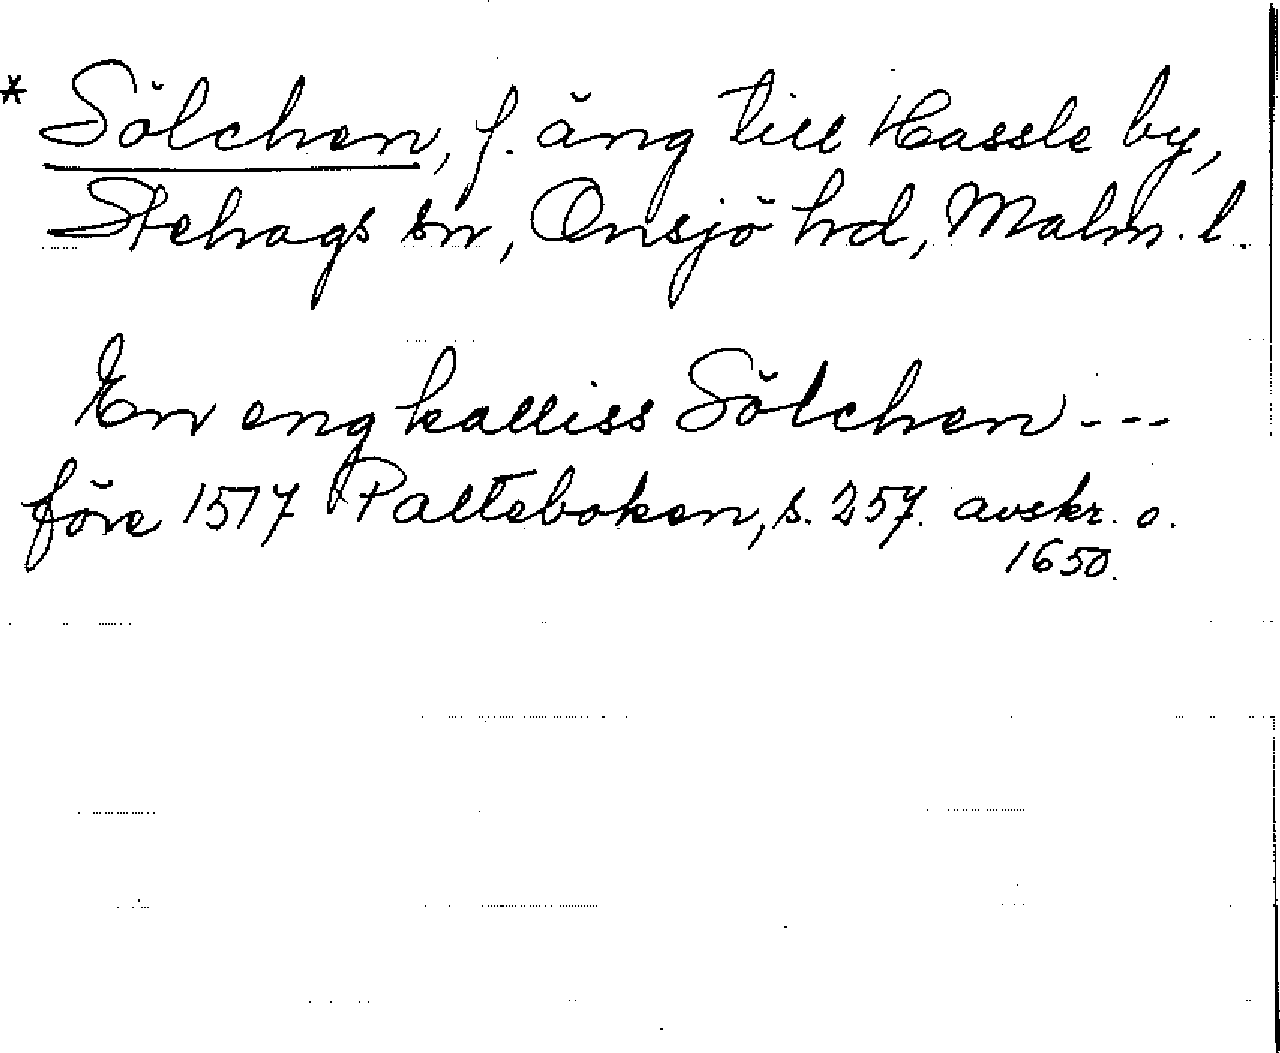 * Sölchen, f. äng till Hassle by,
Stehags sn, Onsjö hd, Malm. l.
En eng kalliss Sölchen ---
före 1517 Palteboken, s. 257. avskr. o.
1650.